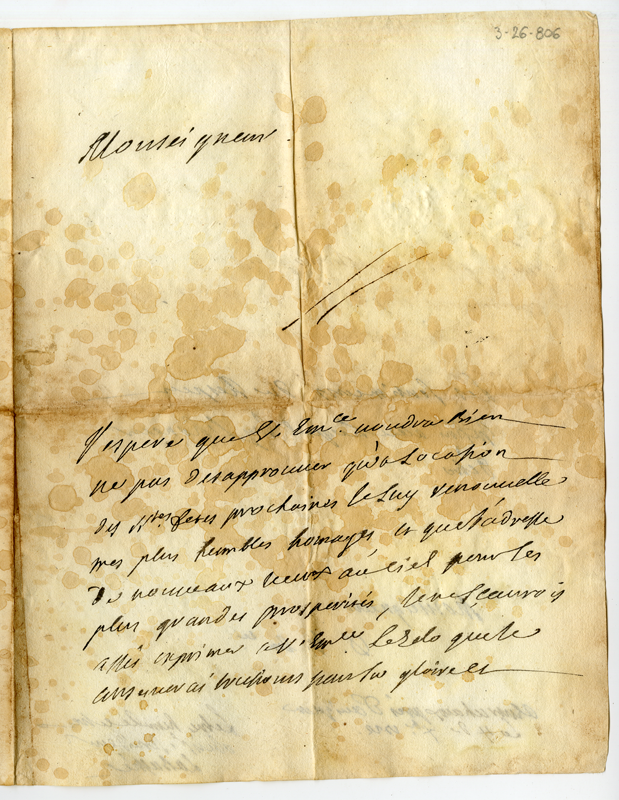 3-26-806
Monseigneur
J'espere que V. Em.ce voudra Bien
ne pas desapprouver qu'a Locasion
des S.tes fetes prochaines Je Luy renouuelle
mes plus humbles homages et que J'adresse
De nouueaux voeux au ciel pour les
plus grandes prosperités, Je ne sçaurois
assés exprimer a V. Em.ce Le Zele que Je
conserverai toujours pour Sa gloire et